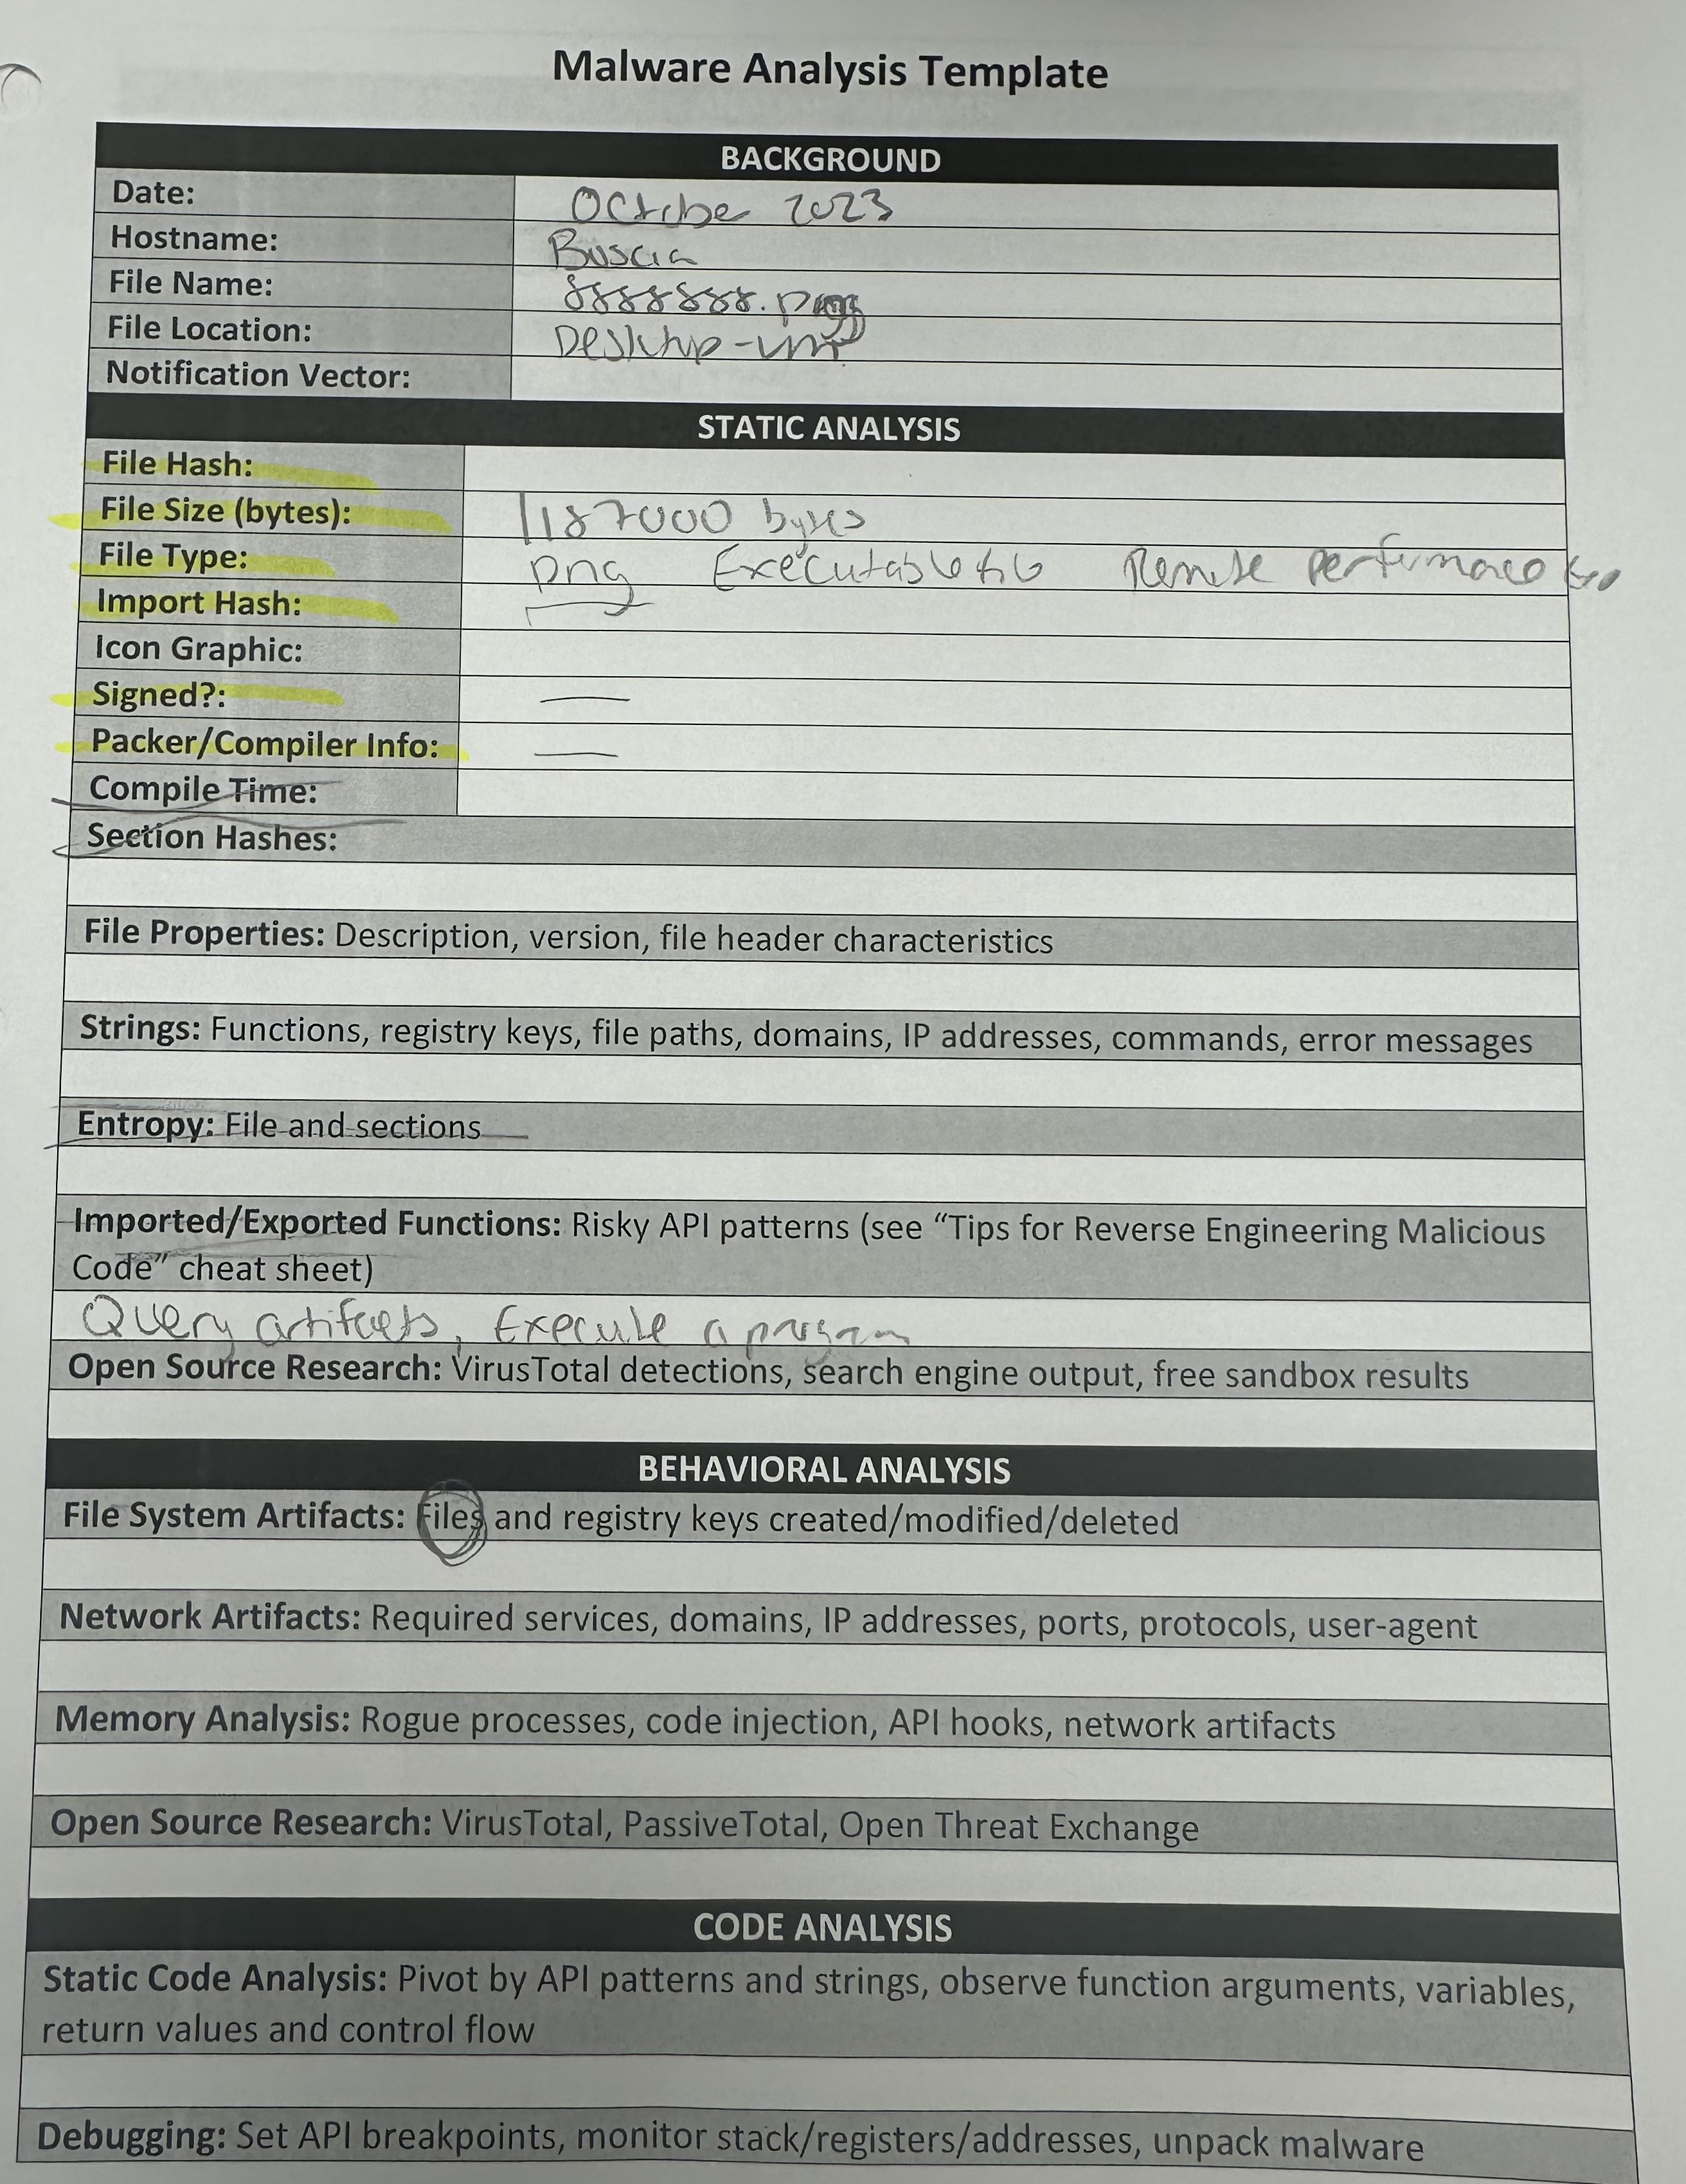 Malware Analysis Template
BACKGROUND
Date: October 2023
Hostname: Buscia
File Name: 8888888.png
File Location: Desktop-
Notification Vector:
STATIC ANALYSIS
File Hash:
File Size (bytes): 1187000 bytes
File Type: png Executable Remote
Import Hash:
Icon Graphic:
Signed?: —
Packer/Compiler Info: —
Compile Time:
Section Hashes:
File Properties: Description, version, file header characteristics
Strings: Functions, registry keys, file paths, domains, IP addresses, commands, error messages
Entropy: File and sections
Imported/Exported Functions: Risky API patterns (see “Tips for Reverse Engineering Malicious
Code” cheat sheet)
Query artifacts, Execute a program
Open Source Research: VirusTotal detections, search engine output, free sandbox results
BEHAVIORAL ANALYSIS
File System Artifacts: Files and registry keys created/modified/deleted
Network Artifacts: Required services, domains, IP addresses, ports, protocols, user-agent
Memory Analysis: Rogue processes, code injection, API hooks, network artifacts
Open Source Research: VirusTotal, PassiveTotal, Open Threat Exchange
CODE ANALYSIS
Static Code Analysis: Pivot by API patterns and strings, observe function arguments, variables,
return values and control flow
Debugging: Set API breakpoints, monitor stack/registers/addresses, unpack malware